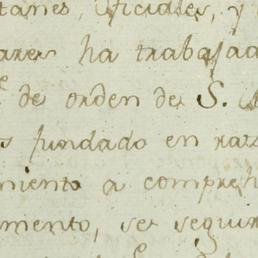 tanes, oficiales, y
ares ha trabajad
de orden de S.
s fundado en raz
miento a compreh
amento, ser segur